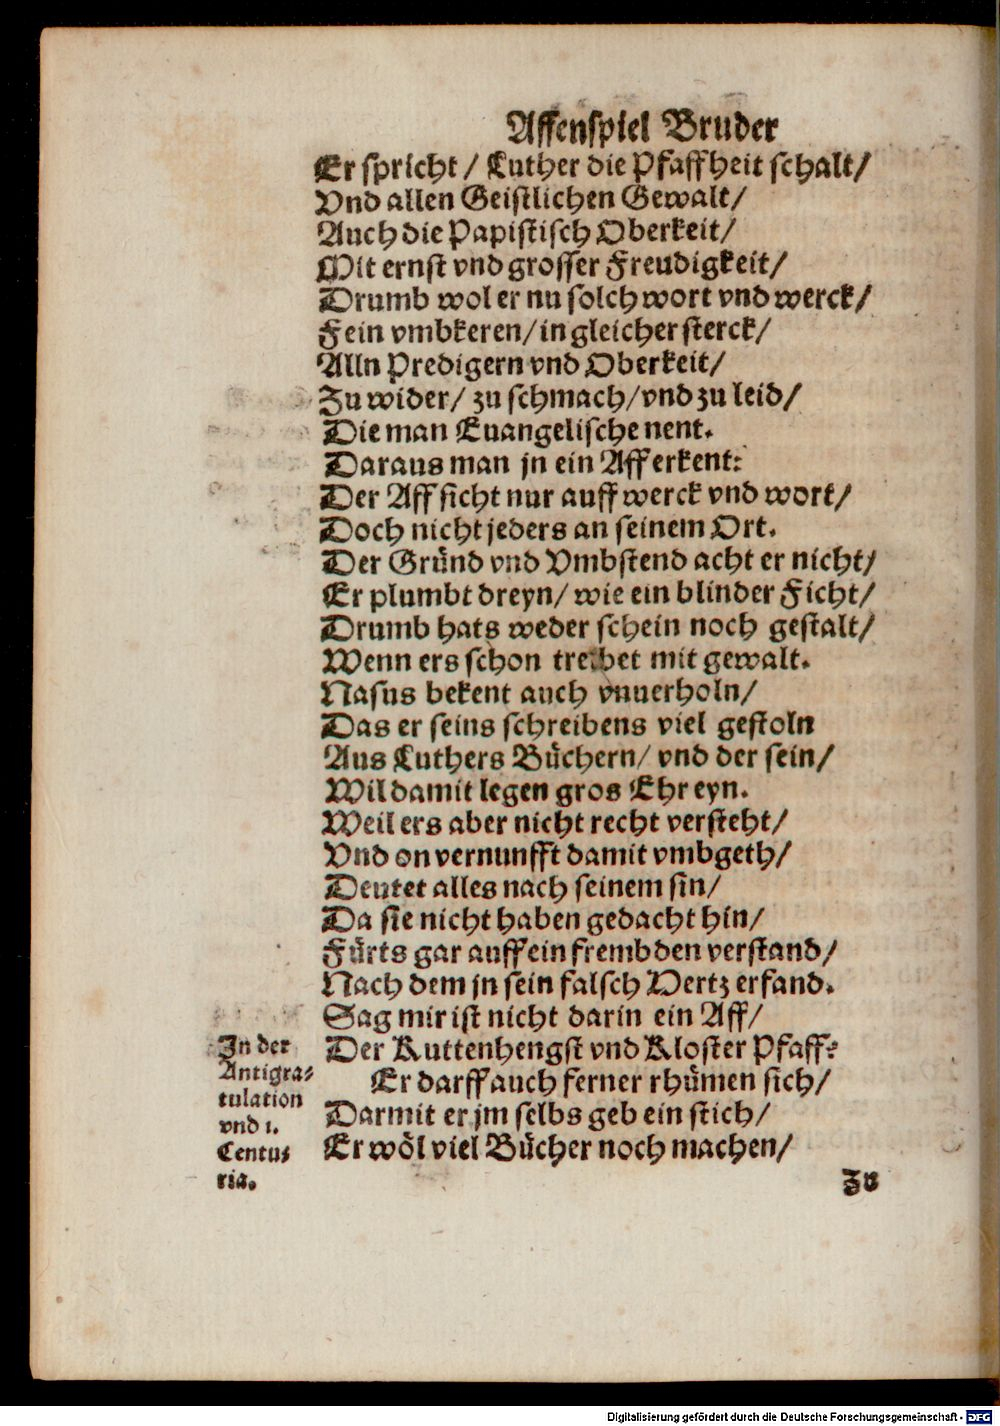 Affenspiel Bruder
Er spricht / Luther die Pfaffheit schalt /
Vnd allen Geistlichen Gewalt /
Auch die Papistisch Oberkeit /
Mit ernst vnd grosser Freudigkeit /
Drumb wol er nu solch wort vnd werck /
Fein vmbkeren / in gleicher sterck /
Alln Predigern vnd Oberkeit /
Zu wider / zu schmach / vnd zu leid /
Die man Euangelische nent.
Daraus man jn ein Aff erkent:
Der Aff sicht nur auff werck vnd wort /
Doch nicht jeders an seinem Ort.
Der Gründ vnd Vmbstend acht er nicht /
Er plumbt dreyn / wie ein blinder Ficht /
Drumb hats weder schein noch gestalt /
Wenn ers schon treibet mit gewalt.
Nasus bekent auch vnuerholn /
Das er seins schreibens viel gestoln
Aus Luthers Büchern / vnd der sein /
Wil damit legen gros Ehr eyn.
Weil ers aber nicht recht versteht /
Vnd on vernunfft damit vmbgeth /
Deutet alles nach seinem sin /
Da sie nicht haben gedacht hin /
Fürts gar auff ein frembden verstand /
Nach dem jn sein falsch Hertz erfand.
Sag mir ist nicht darin ein Aff /
Der Kuttenhengst vnd Kloster Pfaff?
Er darff auch ferner rhümen sich /
Darmit er jm selbs geb ein stich /
Er wöl viel Bücher noch machen /
In der
Antigra-
tulation
vnd 1.
Centu-
ria.
Zu
Digitalisierung gefördert durch die Deutsche Forschungsgemeinschaft - DFG